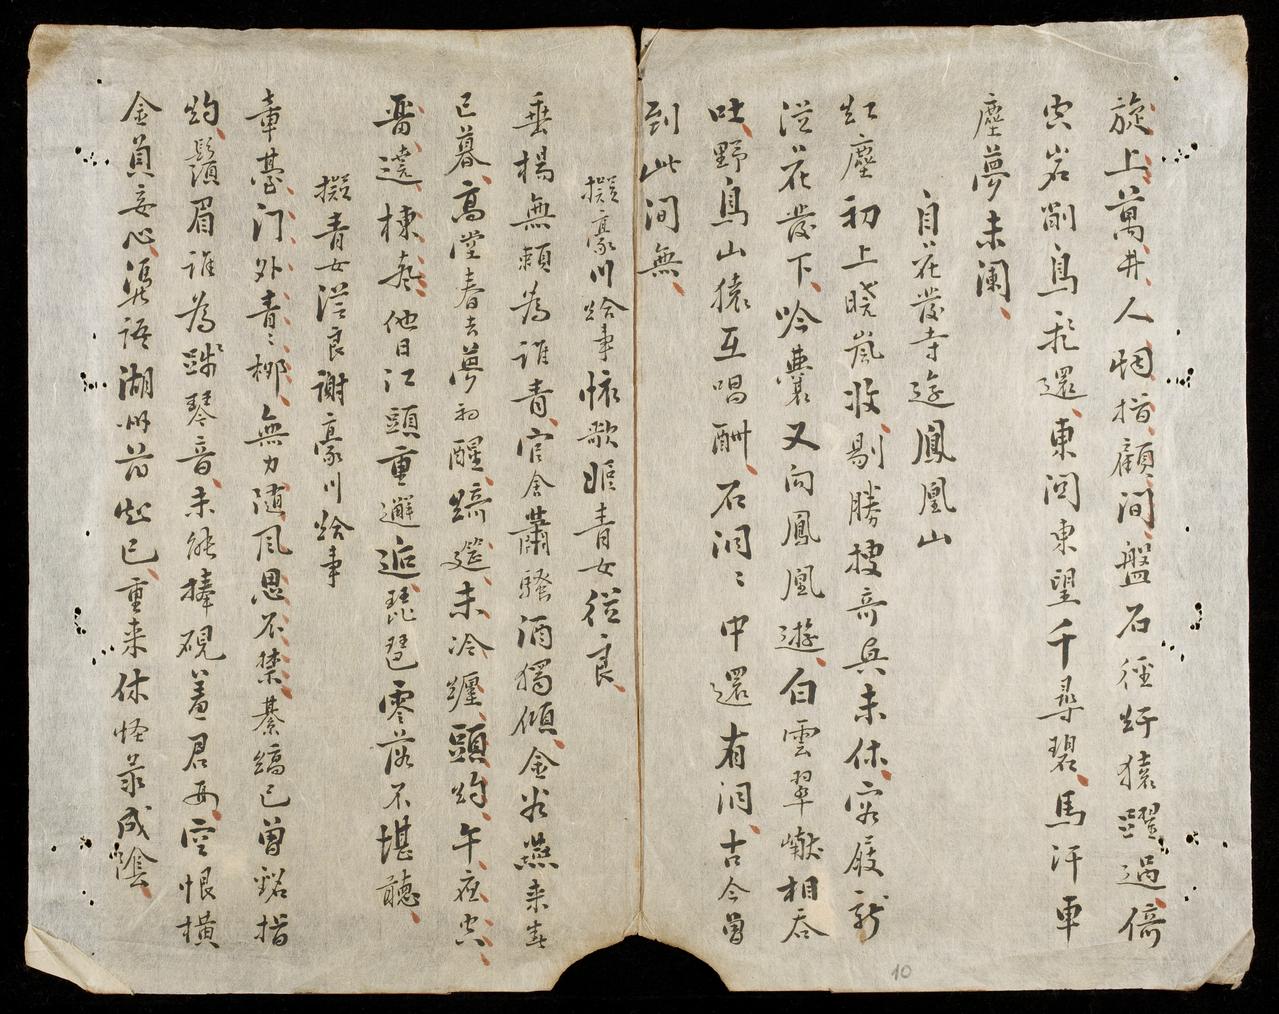 旋上萬井人烟指顧間盤石徑紆猿躍過倚
空岩削鳥飛還東関東望千尋碧馬汗車
塵夢未闌
自花發寺遊鳳凰山
紅塵初上曉嵐收剔勝搜奇興未休寄屐新
從花發下吟囊又向鳳凰遊白雲翠巘相吞
吐野鳥山猿互唱酬石洞〻中還有洞古今曾
到此间無
擬豪川給事懷歌姬青女從良
垂楊無賴為誰青官舍蕭騷酒獨傾金谷燕来春
已暮高堂春去夢初醒蹄筵未冷纏頭灼午夜空
畱遶棟聲他日江頭重邂逅琵琶零落不堪聽
擬青女從良謝豪川給事
章臺门外青〻柳無力隨風思不禁綦縞已曾銘指
灼鬚眉誰為賤琴音未能捧硯羞君再空恨橫
金負妾心渠語湖州前起已重来休怪菉成陰
10